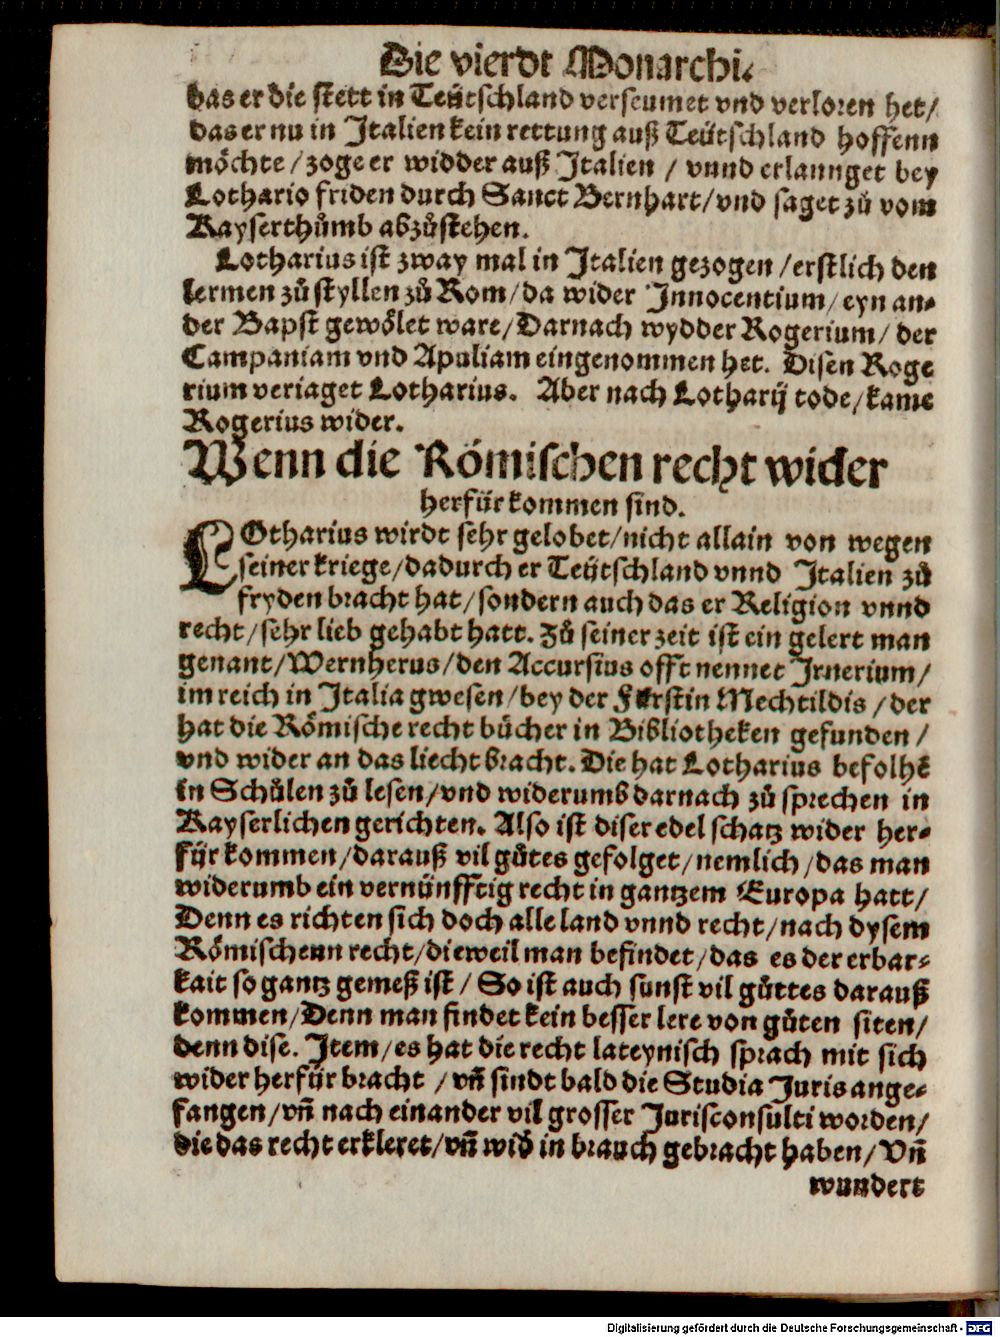 Die vierdt Monarchi.
das er die stett in Teütschland verseumet vnd verloren het/
das er nu in Italien kein rettung auß Teütschland hoffenn
möchte/ zoge er widder auß Italien / vnnd erlannget bey
Lothario friden durch Sanct Bernhart/ vnd saget zů vom
Kayserthůmb abzůstehen.
Lotharius ist zway mal in Italien gezogen/ erstlich den
lermen zů styllen zů Rom/ da wider Innocentium/ eyn an-
der Bapst gewölet ware/ Darnach wydder Rogerium/ der
Campaniam vnd Apuliam eingenommen het. Disen Roge
rium veriaget Lotharius. Aber nach Lotharij tode/ kame
Rogerius wider.
Wenn die Römischen recht wider
herfür kommen sind.
LOtharius wirdt sehr gelobet/ nicht allain von wegen
seiner kriege/ dadurch er Teütschland vnnd Italien zů
fryden bracht hat/ sondern auch das er Religion vnnd
recht/ sehr lieb gehabt hatt. Zů seiner zeit ist ein gelert man
genant/ Wernherus/ den Accursius offt nennet Irnerium/
im reich in Italia gwesen/ bey der Fürstin Mechtildis / der
hat die Römische recht bücher in Bibliotheken gefunden /
vnd wider an das liecht bracht. Die hat Lotharius befolhē
in Schůlen zů lesen/ vnd widerumb darnach zů sprechen in
Kayserlichen gerichten. Also ist diser edel schatz wider her-
für kommen/ darauß vil gůtes gefolget/ nemlich/ das man
widerumb ein vernünfftig recht in gantzem Europa hatt/
Denn es richten sich doch alle land vnnd recht/ nach dysem
Römischenn recht/ dieweil man befindet/ das es der erbar-
kait so gantz gemeß ist / So ist auch sunst vil gůttes darauß
kommen/ Denn man findet kein besser lere von gůten siten/
denn dise. Item/ es hat die recht lateynisch sprach mit sich
wider herfür bracht / vñ sindt bald die Studia Juris ange-
fangen/ vñ nach einander vil grosser Jurisconsulti worden/
die das recht erkleret/ vñ wiď in brauch gebracht haben/ Vñ
wundert
Digitalisierung gefördert durch die Deutsche Forschungsgemeinschaft - DFG